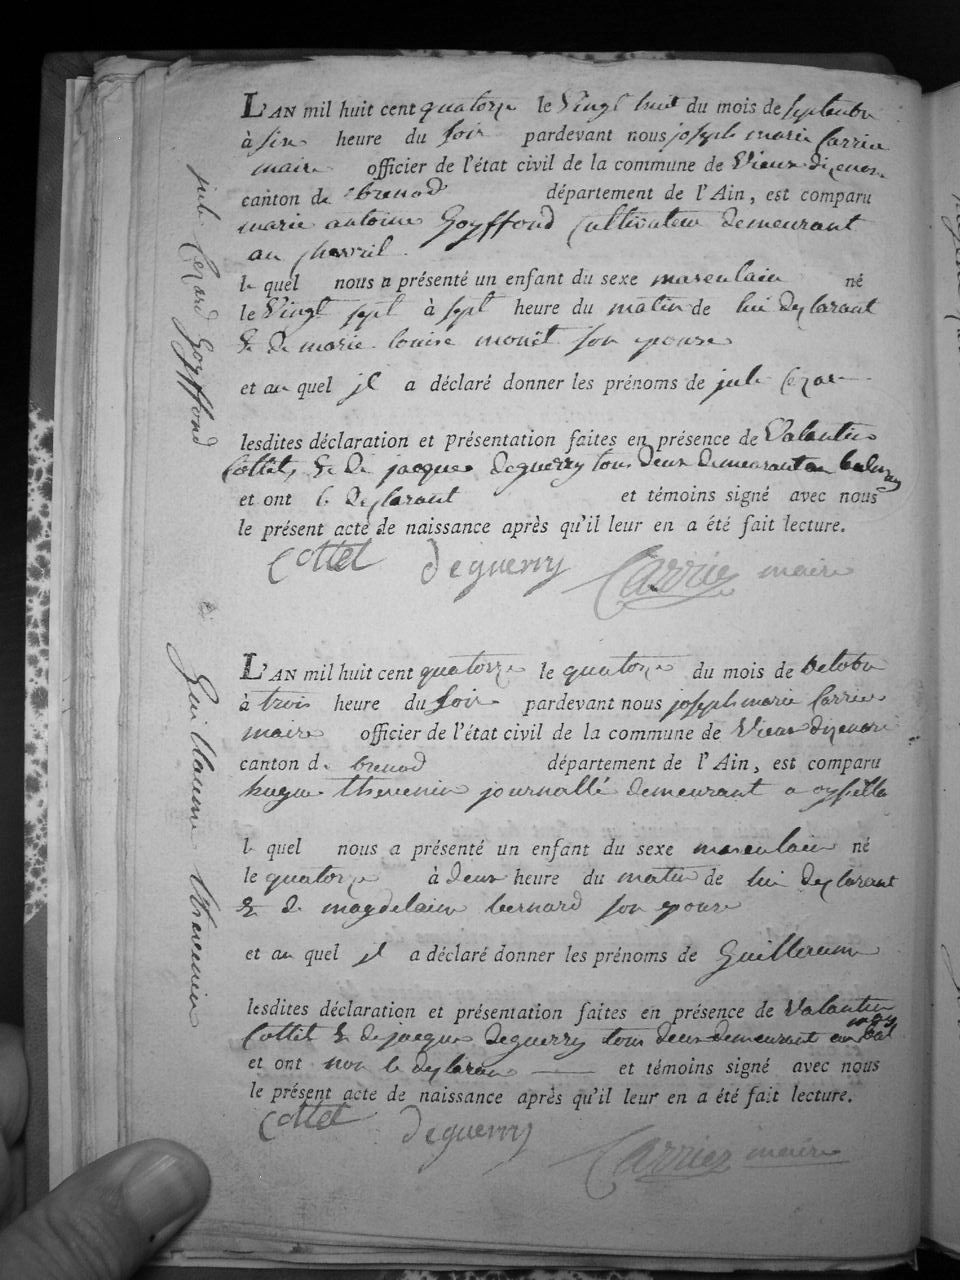 L'AN mil huit cent quatorze le Vingt huit du mois de septembre
à six heure du soir pardevant nous joseph marie Carrier
maire officier de l'état civil de la commune de Vieux dizenore
canton de brenod département de l'Ain, est comparu
marie antoine Goyffond Cultivateur demeurant
au
le quel nous a présenté un enfant du sexe masculain né
le Vingt sept à sept heure du matin de lui deylarant
& de marie louise monet son epouse
et au quel jl a déclaré donner les prénoms de jule Cezar
lesdites déclaration et présentation faites en présence de Valentin
Cottet, & de jacques deguerry tous deux demeurant au balmey
et ont le deylarant et témoins signé avec nous
le présent acte de naissance après qu'il leur en a été fait lecture.
Cottet deguerry Carrier maire
jule Cezard Goyffond
L'AN mil huit cent quatorze le quatorze du mois de octobre
à trois heure du soir pardevant nous joseph marie Carrier
maire officier de l'état civil de la commune de Vieux dizenore
canton de brenod département de l'Ain, est comparu
hugue thevenin journallé demeurant a oysella
le quel nous a présenté un enfant du sexe masculain né
le quatorze à deux heure du matin de lui deylarant
& de magdelaine bernard son epouse
et au quel jl a déclaré donner les prénoms de Guilleaume
lesdites déclaration et présentation faites en présence de Valentin
Cottet & de jacque deguerry tous deux demeurant au balmey
et ont non le deylaran et témoins signé avec nous
le présent acte de naissance après qu'il leur en a été fait lecture.
Cottet deguerry Carrier maire
Guillaume thevenin